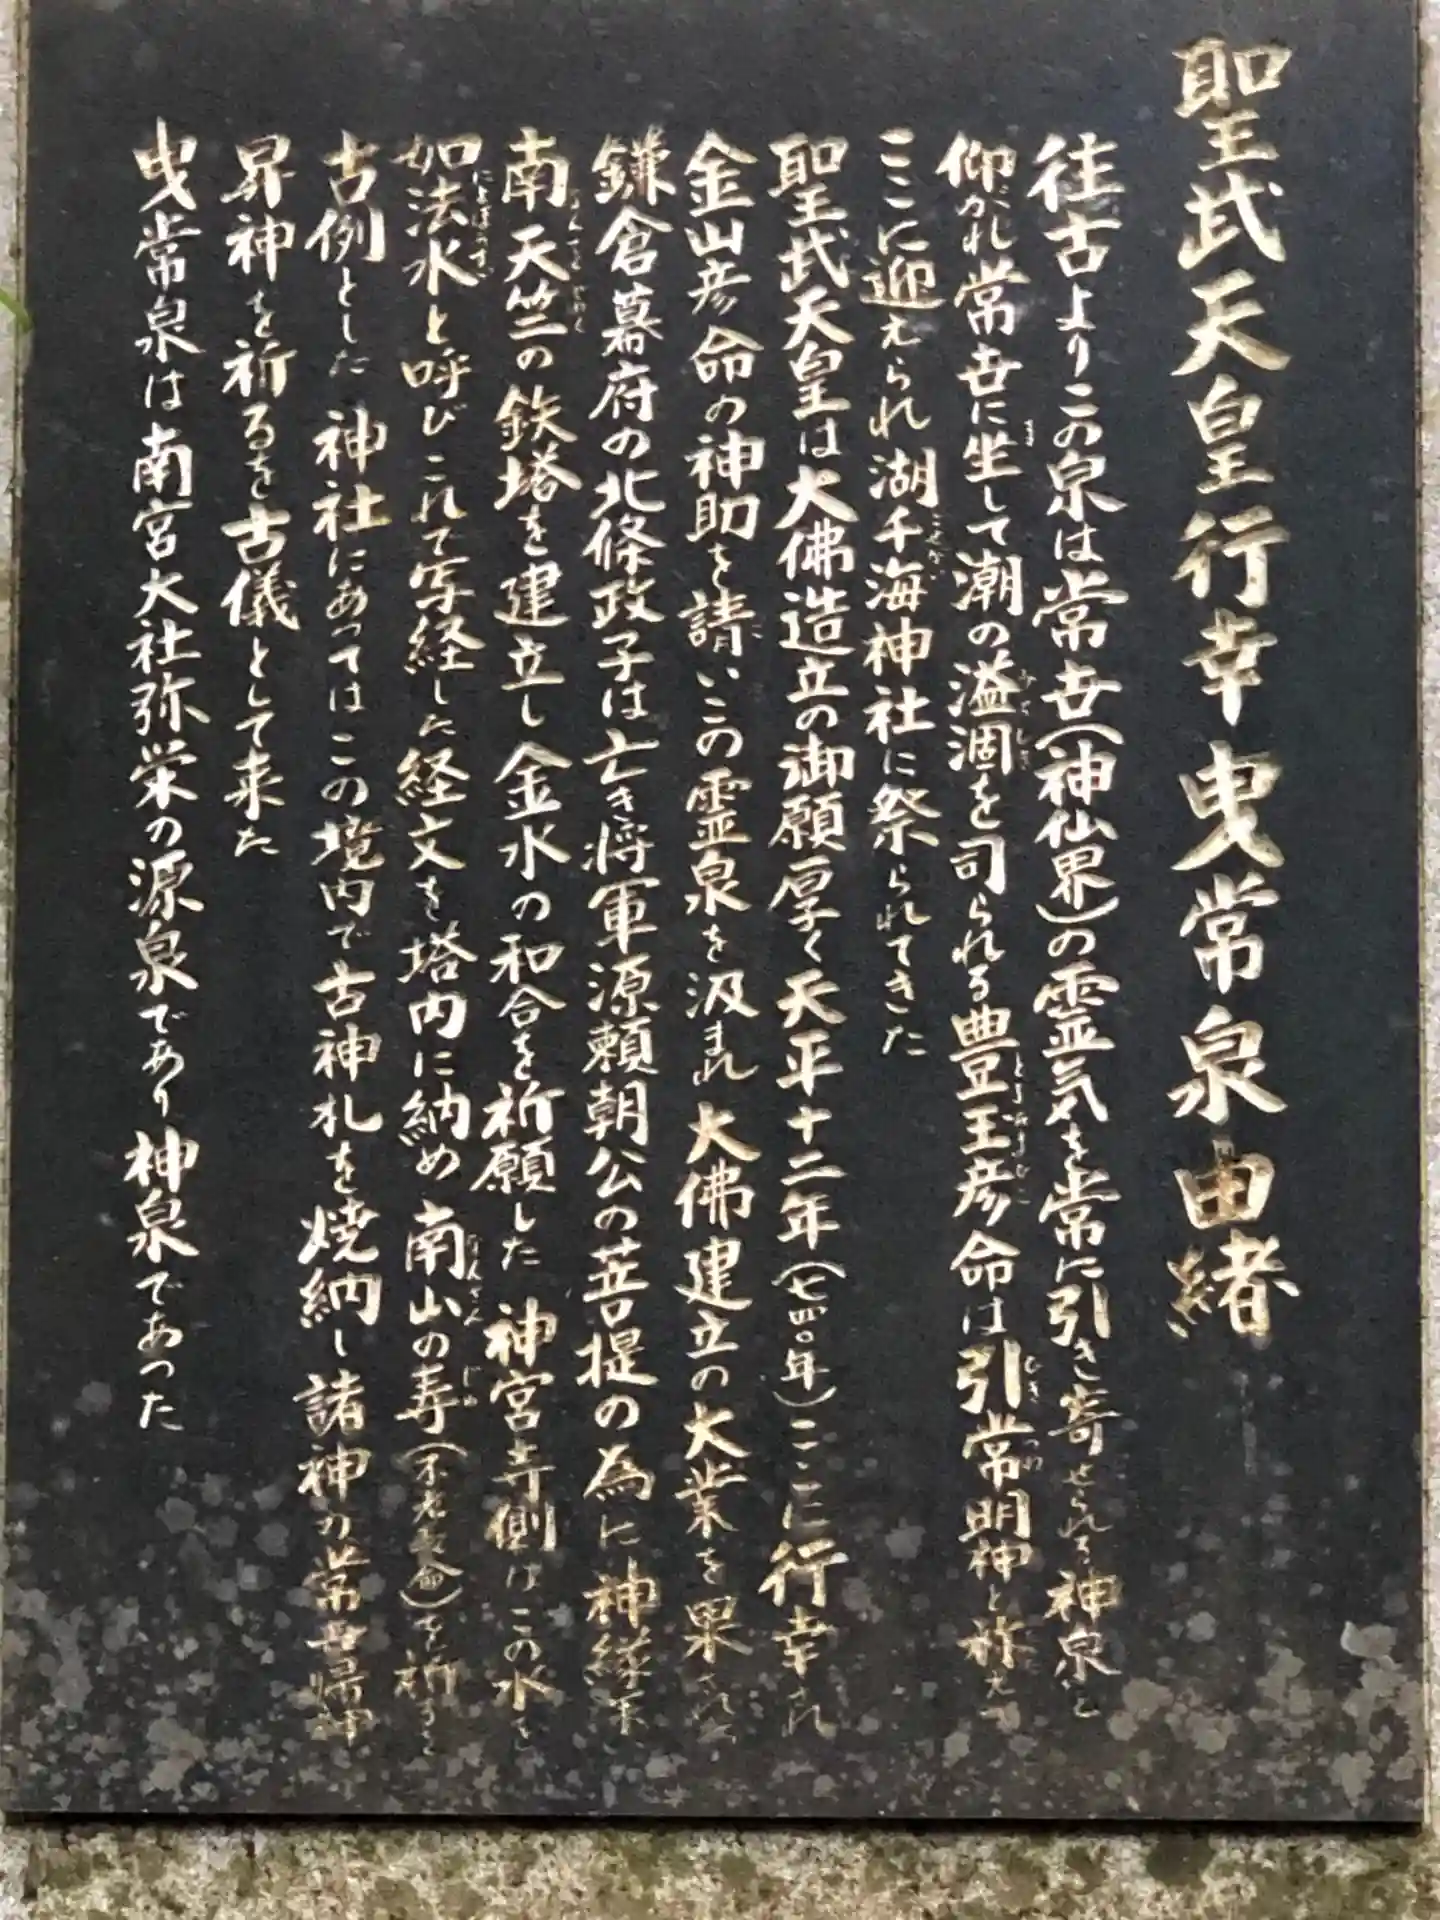 聖武天皇行幸曳常泉由緒
往古よりこの泉は常世(神仙界)の霊気を常に引き寄せられる神泉と
仰がれ常世に坐して潮の溢涸を司られる豊玉彦命は引常明神と称え
ここに迎えられ湖千海神社に祭られてきた
聖武天皇は大佛造立の御願厚く天平十二年(七四〇年)ここに行幸され
金山彦命の神助を請いこの霊泉を汲まれ大佛建立の大業を果され
鎌倉幕府の北條政子は亡き将軍源頼朝公の菩提の為に神縁
南天竺の鉄塔を建立し金水の和合を祈願した 神宮寺側はこの水を
如法水と呼びこれで写経した経文を塔内に納め南山の寿(不老長命)を祈ると
古例とした 神社にあってはこの境内で古神札を焼納し諸神の常世帰神
昇神を祈るを古儀として来た
曳常泉は南宮大社弥栄の源泉であり神泉であった